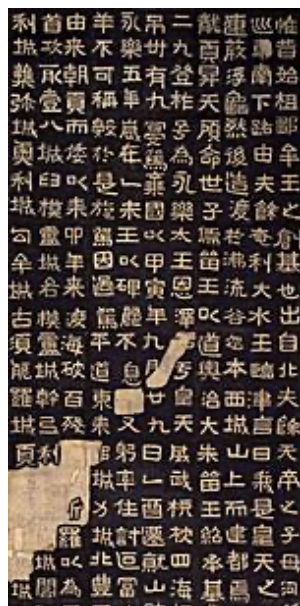 惟昔始祖鄒牟王之創基也出自北夫餘天帝之子母河
巡幸南下路由夫餘奄利大水王臨津言曰我是皇天之
連葭浮龜然後造渡於沸流谷忽本西城山上而建都焉
頁昇天顧命世子儒留王以道興治大朱留王紹承基
二九登祚号為永樂太王恩澤于皇天威武振被四海
弔卅有九寔駕棄國以甲寅年九月廿九日乙酉遷就山
永樂五年歲在乙未王以碑麗不息又躬率住討叵富
羊不可稱數於是旋駕因過襄平道東來城力城北豐
由來朝貢而倭以來卯年來渡海破百殘斤羅以為
首攻取壹八城臼模盧城各模盧城幹弖利城閣
利城雜弥城奧利城勾牟城古須耶羅城頁城